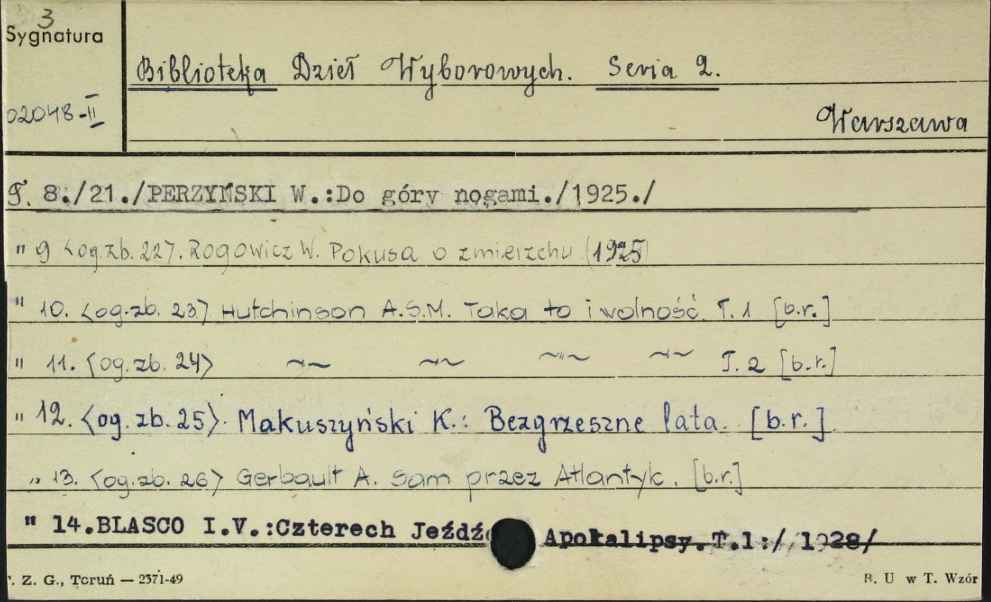 3
Sygnatura
Biblioteka Dzieł Wyborowych. Seria 2.
02048-II
Warszawa
T. 8./21./PERZYŃSKI W.:Do góry nogami./1925./
" 9 <og.zb. 22>. Rogowicz W. Pokusa o zmierzchu (1925)
" 10. <og.zb. 23> Hutchinson A.S.M. Taka to i wolność. T. 1 [b.r.]
" 11. <og.zb. 24> ~~ ~~ ~"~ ~~ T. 2 [b.r.]
" 12. <og.zb. 25>. Makuszyński K.: Bezgrzeszne lata. [b.r.]
" 13. <og.zb. 26> Gerbault A. Sam przez Atlantyk. [b.r.]
" 14.BLASCO I.V.:Czterech Jeźdź Apokalipsy.T.1:/ 1928/
. Z. G., Toruń — 2371-49
B. U w T. Wzór